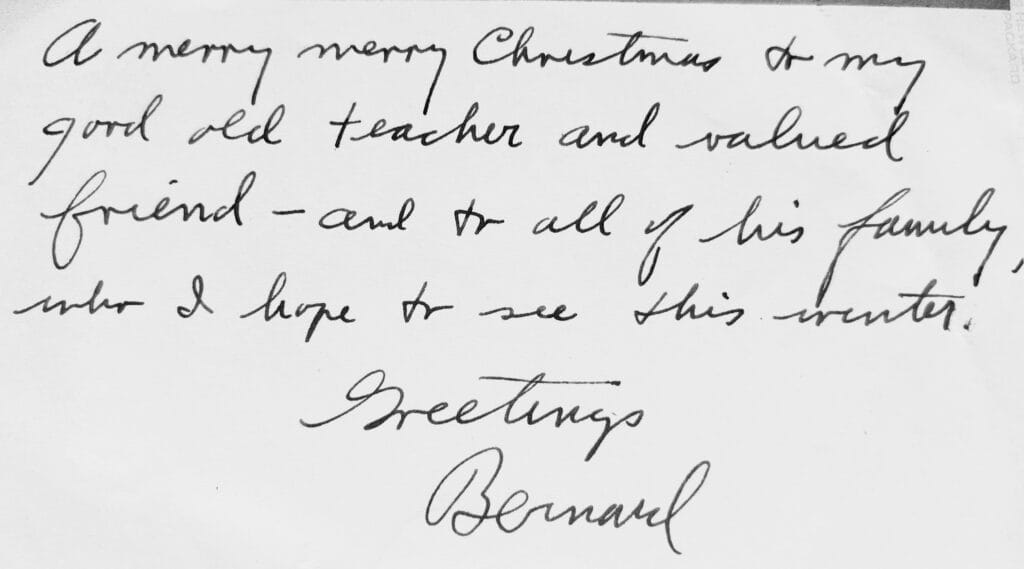 A merry merry Christmas to my
good old teacher and valued
friend – and to all of his family,
who I hope to see this winter.
Greetings
Bernard